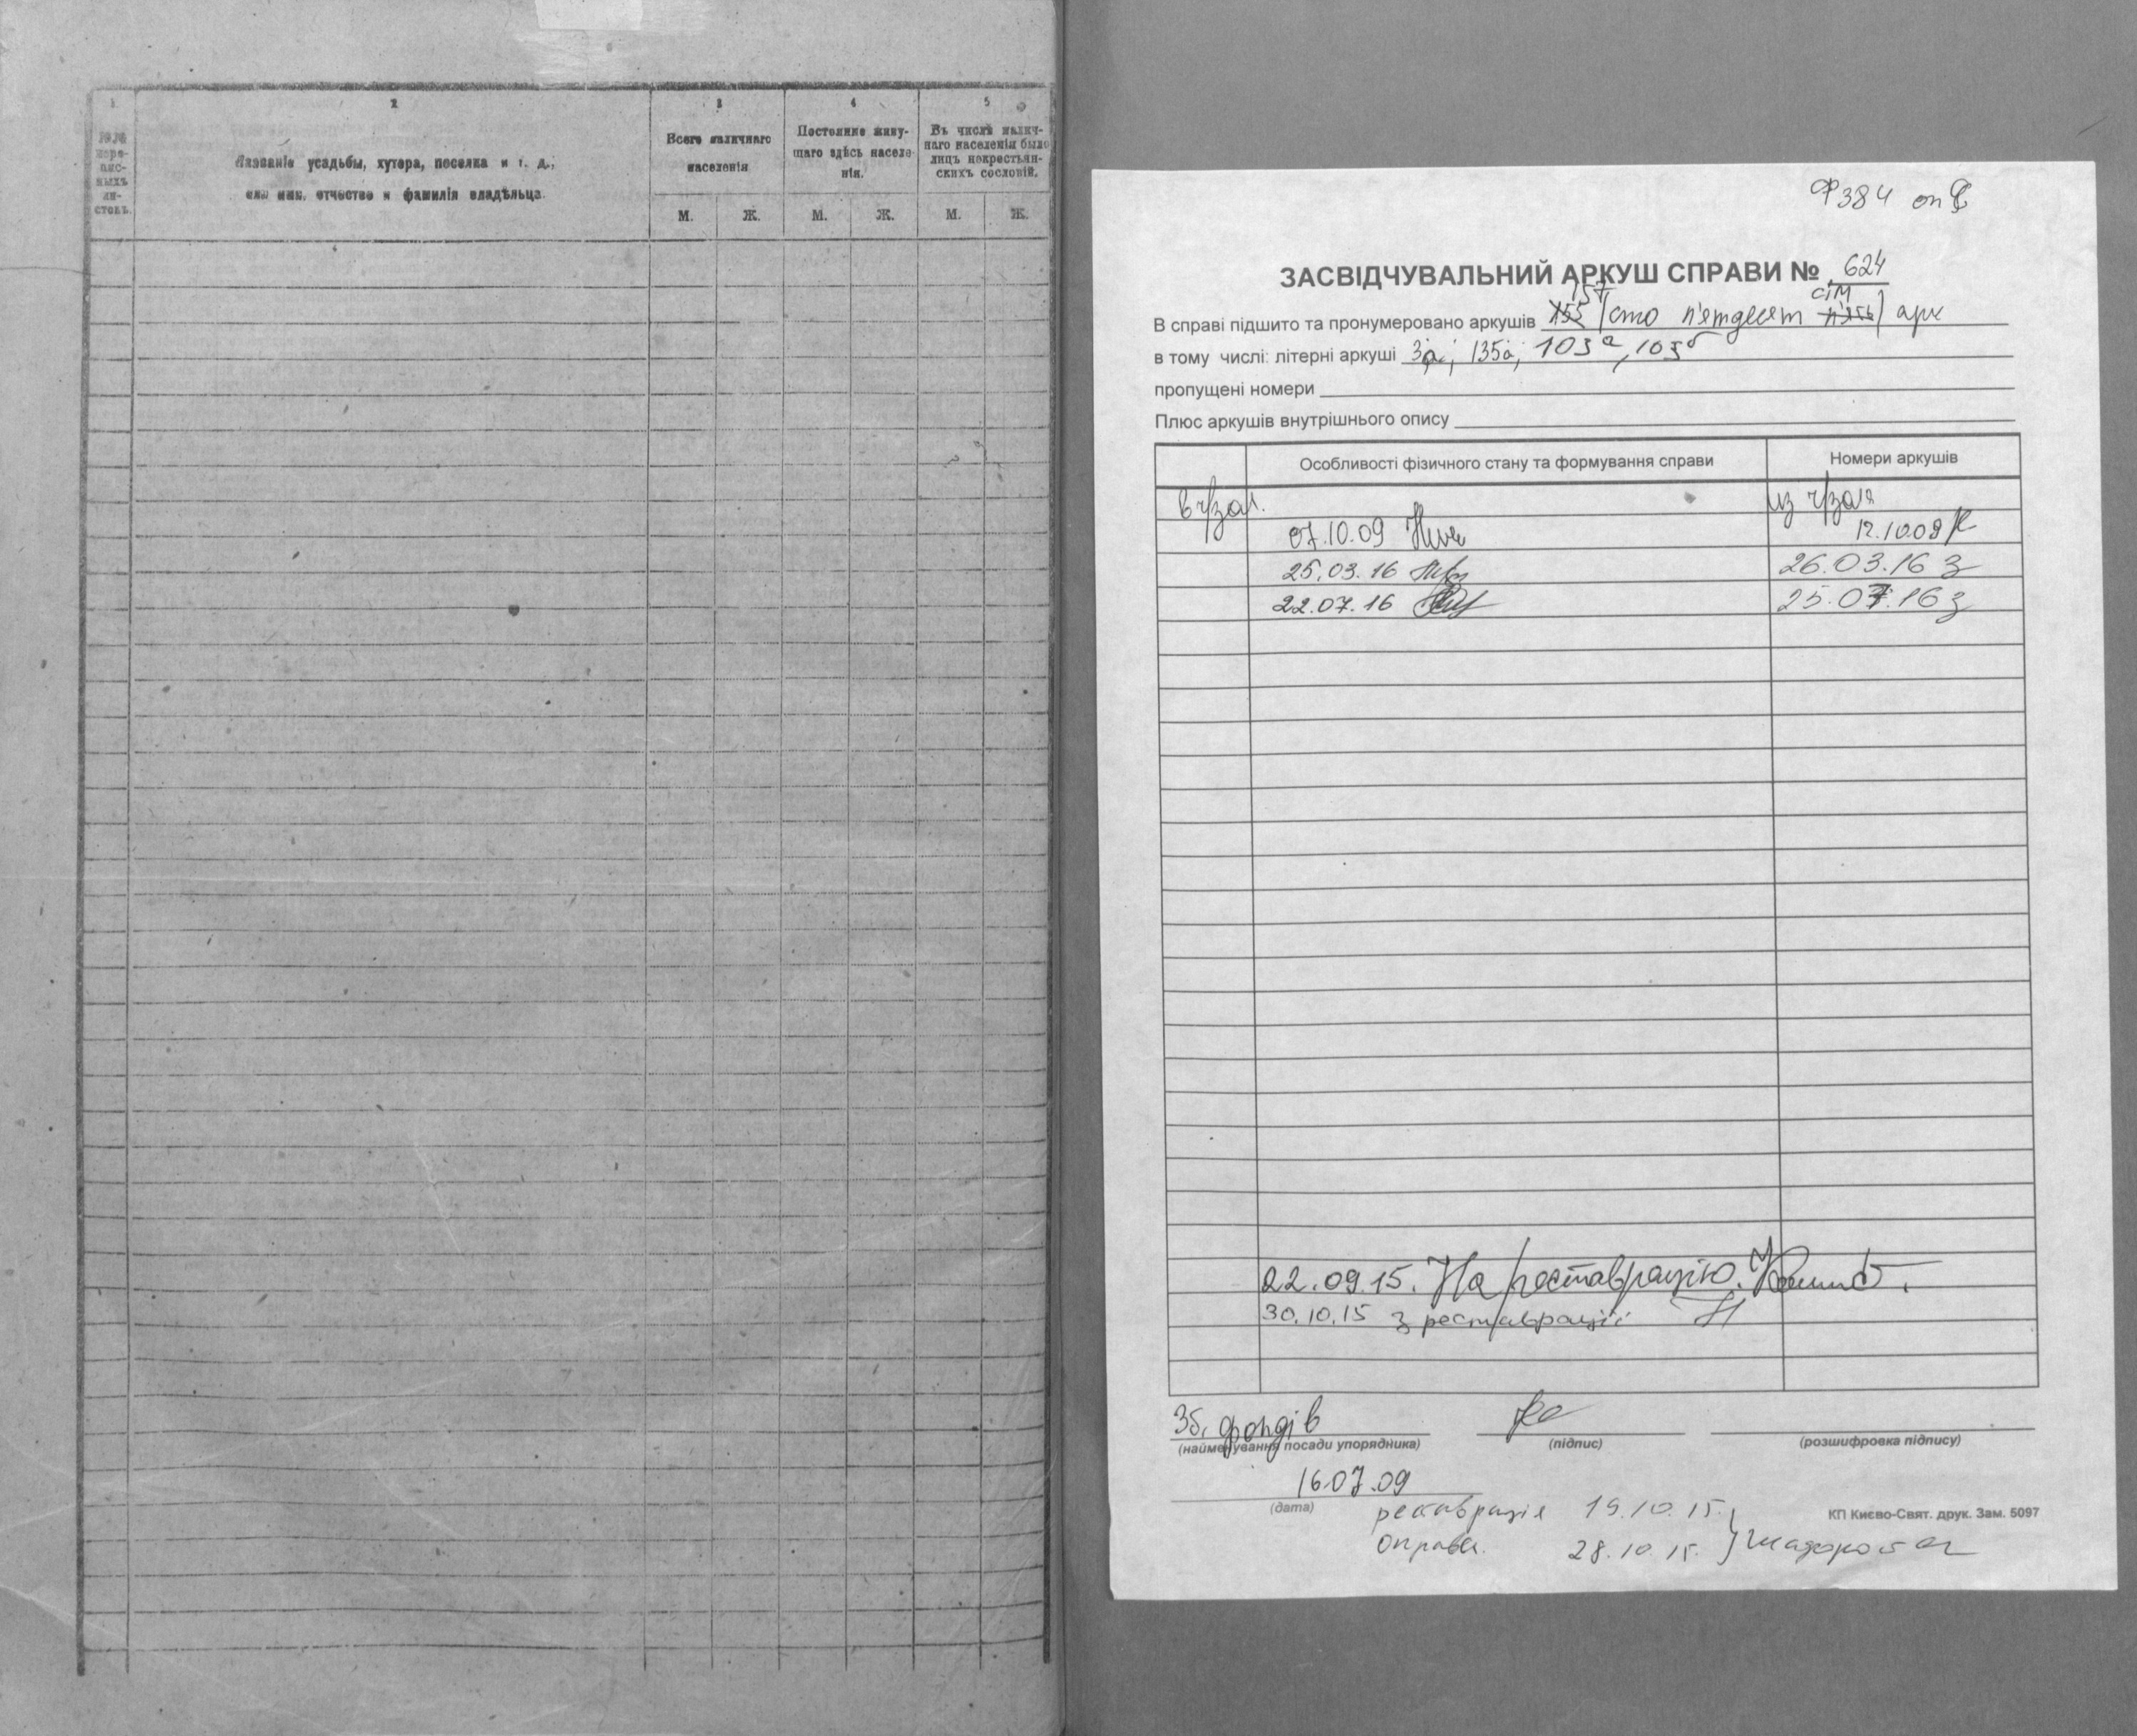 1 2 3 4 5
Названіе усадьбы, хутора, поселка и т. д.,
или имя, отчество и фамилія владѣльца.
Всего наличнаго
населенія
Постоянно живу-
щаго здѣсь населе-
нія.
Въ числѣ налич-
наго населенія было
лицъ некрестьян-
скихъ сословій.
№№
пере-
пис-
ныхъ
ли-
стовъ.
М. Ж. М. Ж. М. Ж.
Ф 384 оп
ЗАСВІДЧУВАЛЬНИЙ АРКУШ СПРАВИ № 624
157 сім
В справі підшито та пронумеровано аркушів 155 (сто п'ятдесят п'ять) арк
в тому числі: літерні аркуші 3а; 135а; 103а, 103б
пропущені номери
Плюс аркушів внутрішнього опису
Особливості фізичного стану та формування справи Номери аркушів
в ч/зал. из ч/зала
07.10.09 12.10.09
25.03.16 26.03.16 з
22.07.16 25.07.16 з
22.09.15. На реставрацію.
30.10.15 з реставрації
Зб. фондів
(найменування посади упорядника) (підпис) (розшифровка підпису)
16.07.09
(дата)
реставрація 19.10.15.
КП Києво-Свят. друк. Зам. 5097
Оправа. 28.10.15.